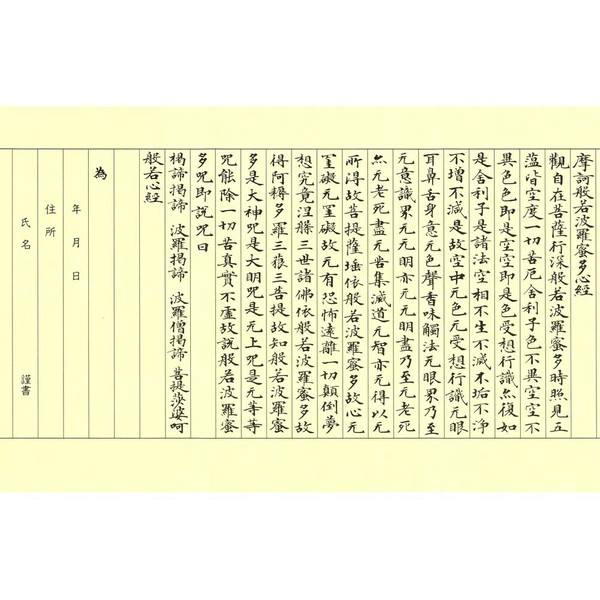 摩訶般若波羅蜜多心経
観自在菩薩行深般若波羅蜜多時照見五
蘊皆空度一切苦厄舎利子色不異空空不
異色色即是空空即是色受想行識亦復如
是舎利子是諸法空相不生不滅不垢不浄
不増不減是故空中无色无受想行識无眼
耳鼻舌身意无色聲香味觸法无眼界乃至
无意識界无无明亦无无明盡乃至无老死
亦无老死盡无苦集滅道无智亦无得以无
所得故菩提薩埵依般若波羅蜜多故心无
罣礙无罣礙故无有恐怖遠離一切顛倒夢
想究竟涅槃三世諸佛依般若波羅蜜多故
得阿耨多羅三藐三菩提故知般若波羅蜜
多是大神咒是大明咒是无上咒是无等等
咒能除一切苦真實不虚故説般若波羅蜜
多咒即説咒曰
掲諦掲諦 波羅掲諦 波羅僧掲諦 菩提莎婆呵
般若心経
為
年 月 日
住所
氏名 謹書